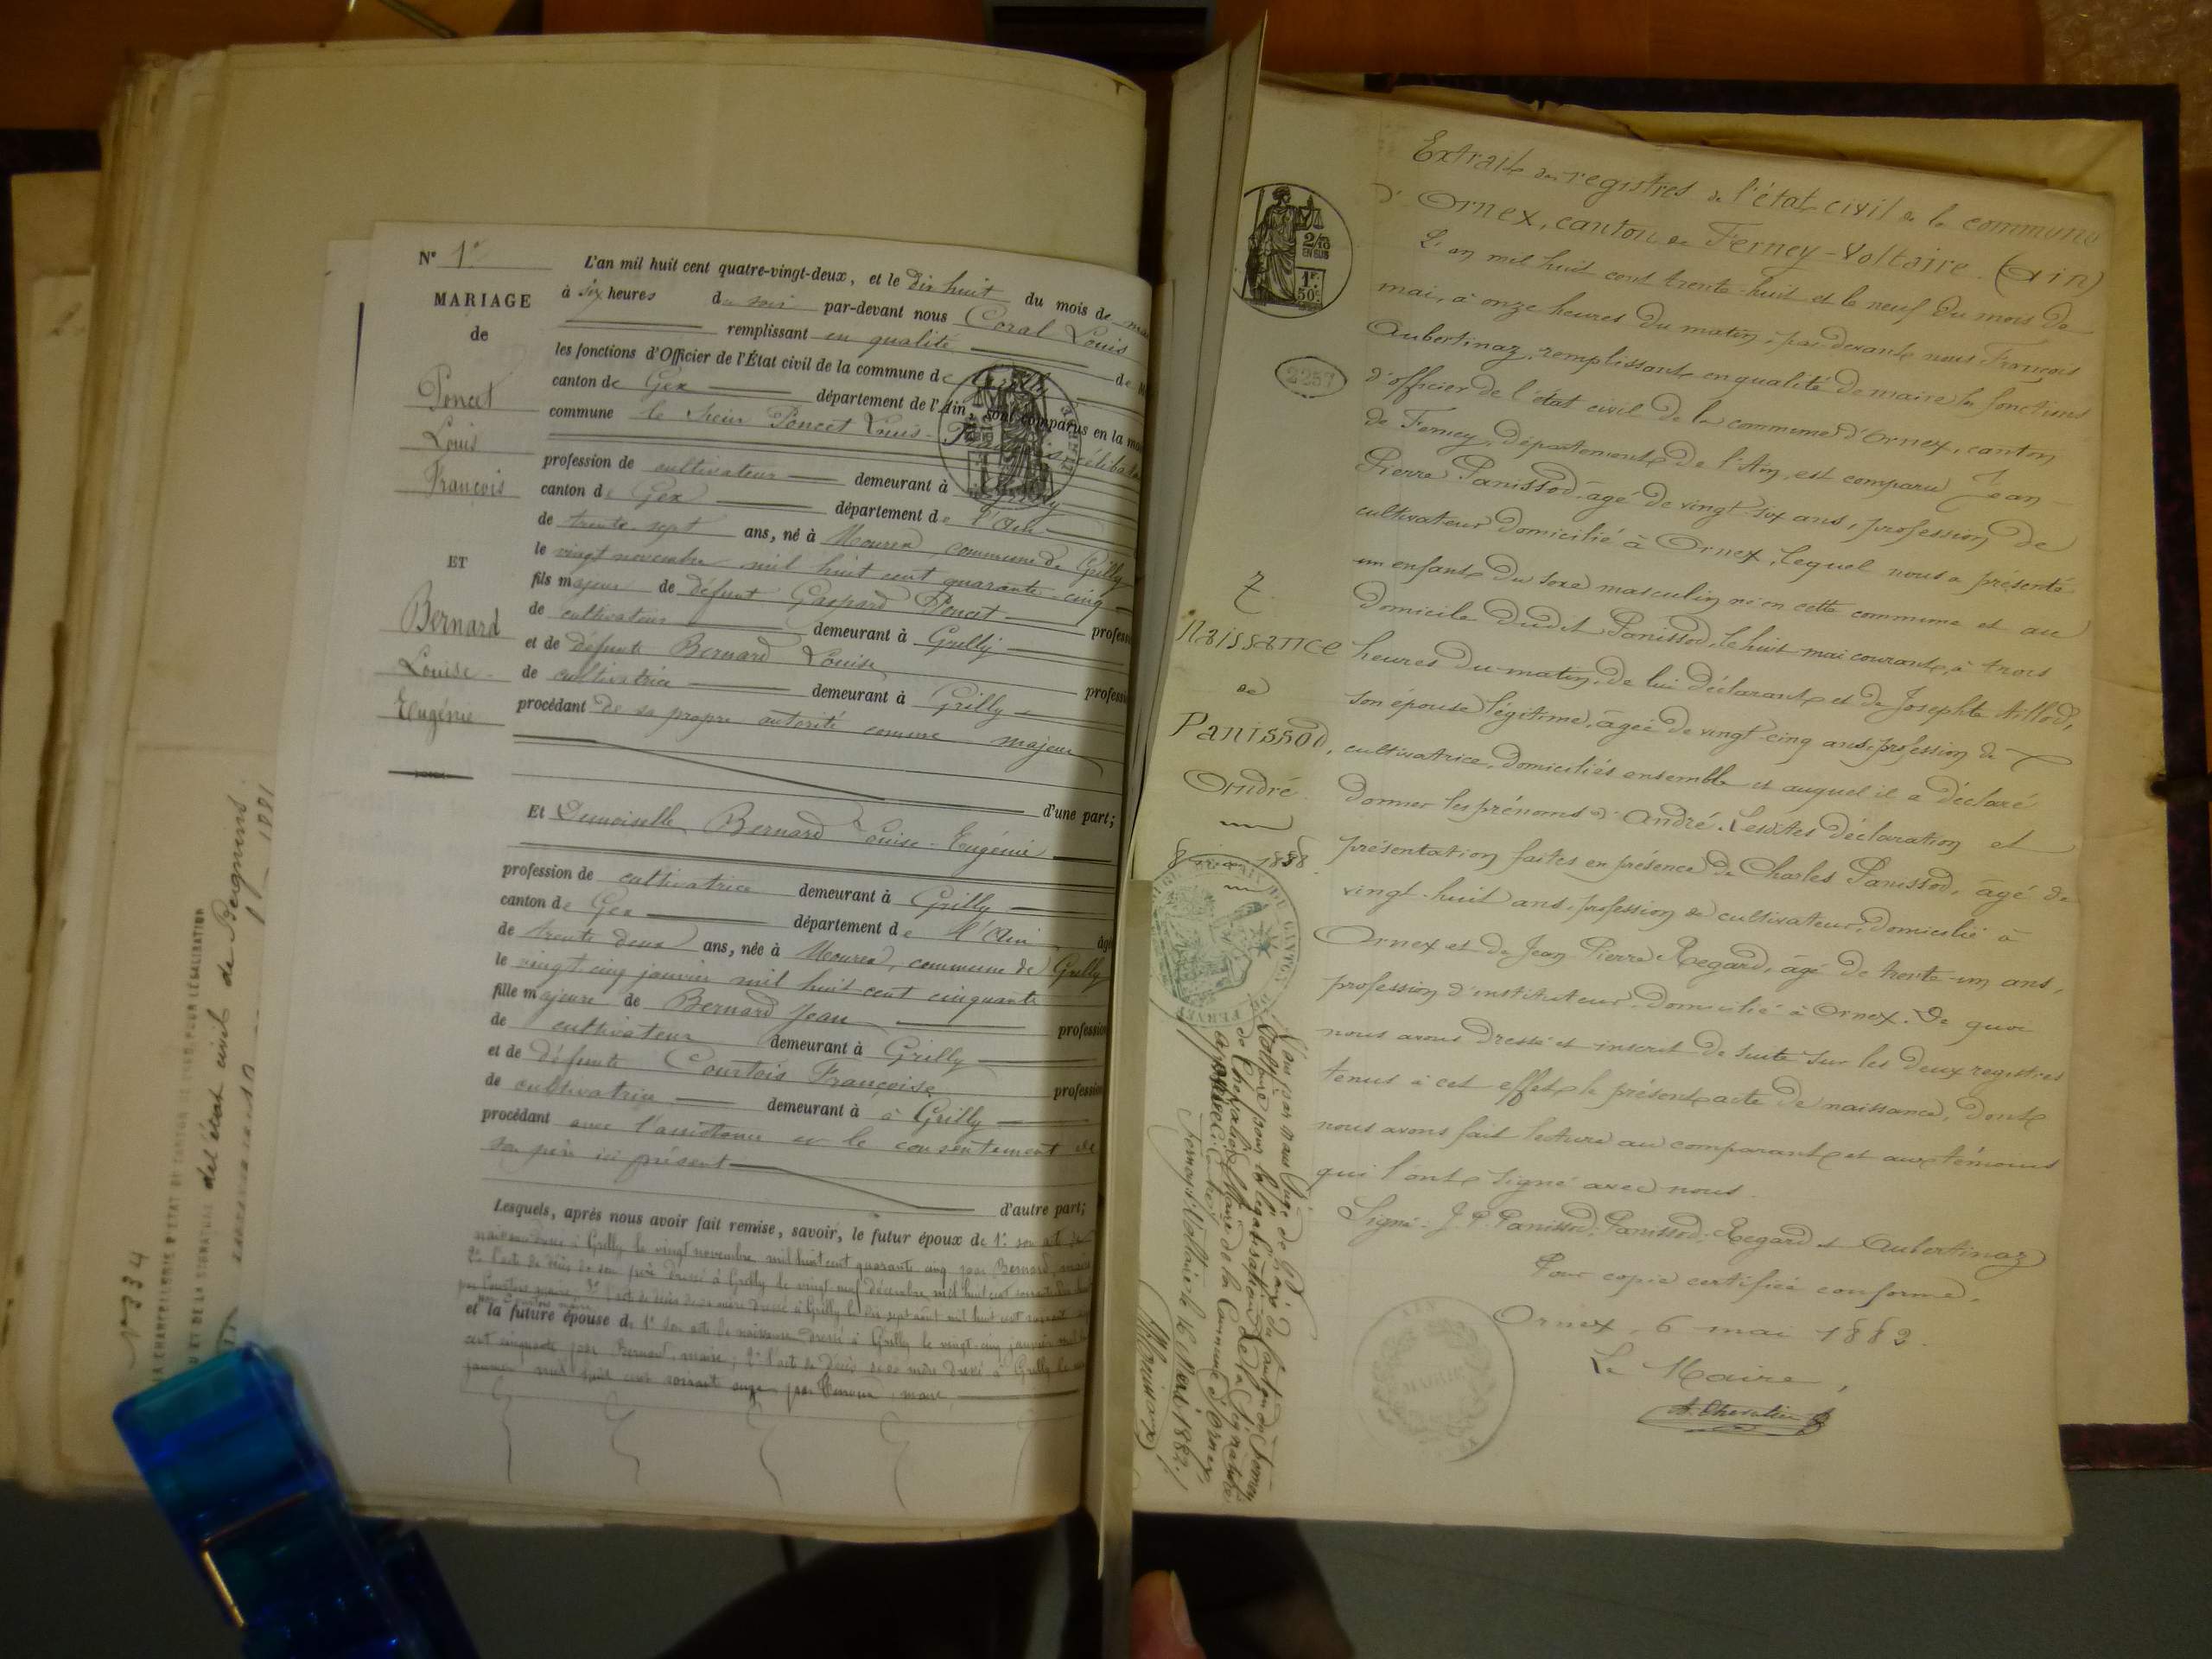 N° 1er
MARIAGE
de
Poncet
Louis
François
ET
Bernard
Louise
Eugénie
L'an mil huit cent quatre-vingt-deux, et le dix huit du mois de
à six heures du soir par-devant nous Coral Louis
remplissant en qualité de
les fonctions d'Officier de l'État civil de la commune de Grilly
canton de Gex département de l'Ain, sont comparus en la
commune le sieur Poncet Louis-François célibataire
profession de cultivateur demeurant à Grilly
canton de Gex département de l'Ain
de trente sept ans, né à Mourex, commune de Grilly
le vingt novembre mil huit cent quarante-cinq
fils majeur de défunt Gaspard Poncet
de cultivateur demeurant à Grilly
et de défunte Bernard Louise
de cultivatrice demeurant à Grilly
procédant de sa propre autorité comme majeur
d'une part;
Et Demoiselle Bernard Louise-Eugénie
profession de cultivatrice demeurant à Grilly
canton de Gex département de l'Ain
de trente deux ans, née à Mourex, commune de Grilly
le vingt-cinq janvier mil huit cent cinquante
fille majeure de Bernard Jean
de cultivateur demeurant à Grilly
et de défunte Courtois Françoise
de cultivatrice demeurant à à Grilly
procédant avec l'assistance et le consentement de
son père ici présent
d'autre part;
Lesquels, après nous avoir fait remise, savoir, le futur époux de 1° son acte de
naissance dressé à Grilly le vingt novembre mil huit cent quarante cinq par Bernard, maire
2° l'acte de décès de son père dressé à Grilly le vingt-neuf décembre mil huit cent
3° l'acte de décès de sa mère dressé à Grilly le dix sept août mil huit cent
et la future épouse de 1° son acte de naissance dressé à Grilly le vingt-cinq janvier mil huit
cent cinquante par Bernard, maire; 2° l'acte de décès de sa mère dressé à Grilly le
janvier mil huit cent soixante onze par maire
N° 334
LA CHANCELLERIE D'ÉTAT DU CANTON DE VAUD POUR LÉGALISATION
ET DE LA SIGNATURE de l'état civil de Begnins
1881
Extrait des registres de l'état civil de la commune
d'Ornex, canton de Ferney-Voltaire. (Ain)
L'an mil huit cent trente-huit et le neuf du mois de
mai, à onze heures du matin, par devant nous François
Aubertinaz, remplissant en qualité de maire les fonctions
d'officier de l'état civil de la commune d'Ornex, canton
de Ferney, département de l'Ain, est comparu Jean
Pierre Panissod, âgé de vingt six ans, profession de
cultivateur domicilié à Ornex, lequel nous a présenté
un enfant du sexe masculin né en cette commune et au
domicile dudit Panissod, le huit mai courant, à trois
heures du matin, de lui déclarant et de Josephte Allod,
son épouse légitime, âgée de vingt cinq ans, profession de
cultivatrice, domiciliés ensemble et auquel il a déclaré
donner les prénoms d'André. Lesdites déclaration et
présentation faites en présence de Charles Panissod, âgé de
vingt-huit ans, profession de cultivateur, domicilié à
Ornex et de Jean Pierre Regard, âgé de trente-un ans,
profession d'instituteur, domicilié à Ornex. De quoi
nous avons dressé et inscrit de suite sur les deux registres
tenus à cet effet le présent acte de naissance, dont
nous avons fait lecture au comparant et aux témoins
qui l'ont signé avec nous.
Signé: J. P. Panissod, Panissod, Regard et Aubertinaz
Pour copie certifiée conforme,
Ornex, 6 mai 1882.
Le Maire,
A. Chevalier
2/10
EN SUS
1F.
50C.
2257
7
Naissance
de
Panissod,
André
8 mai 1838.
Vu par nous Juge de Paix du Canton de Ferney
Voltaire pour la légalisation de la signature
de Mr Chevalier Maire de la Commune d'Ornex,
apposée ci-contre.
Ferney-Voltaire le 16 Mai 1882.
MAIRIE
AIN